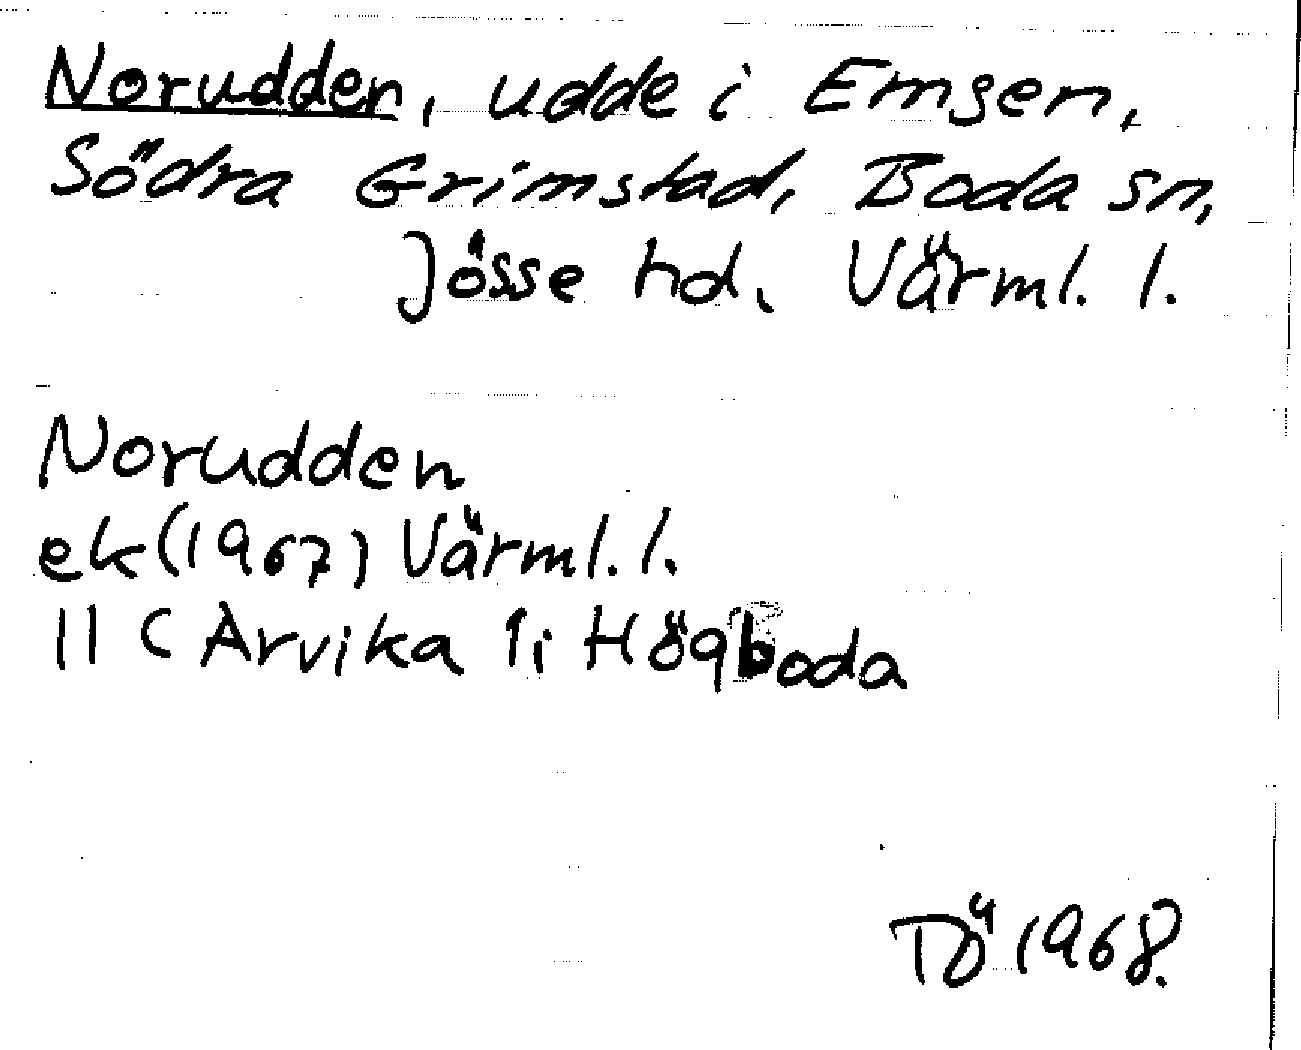 Norudden, udde i Emsen,
Södra Grimstad, Boda sn,
Jösse hd, Värml. l.
Norudden
ek (1967) Värml. l.
11 C Arvika 1i Högboda
TÖ 1968.